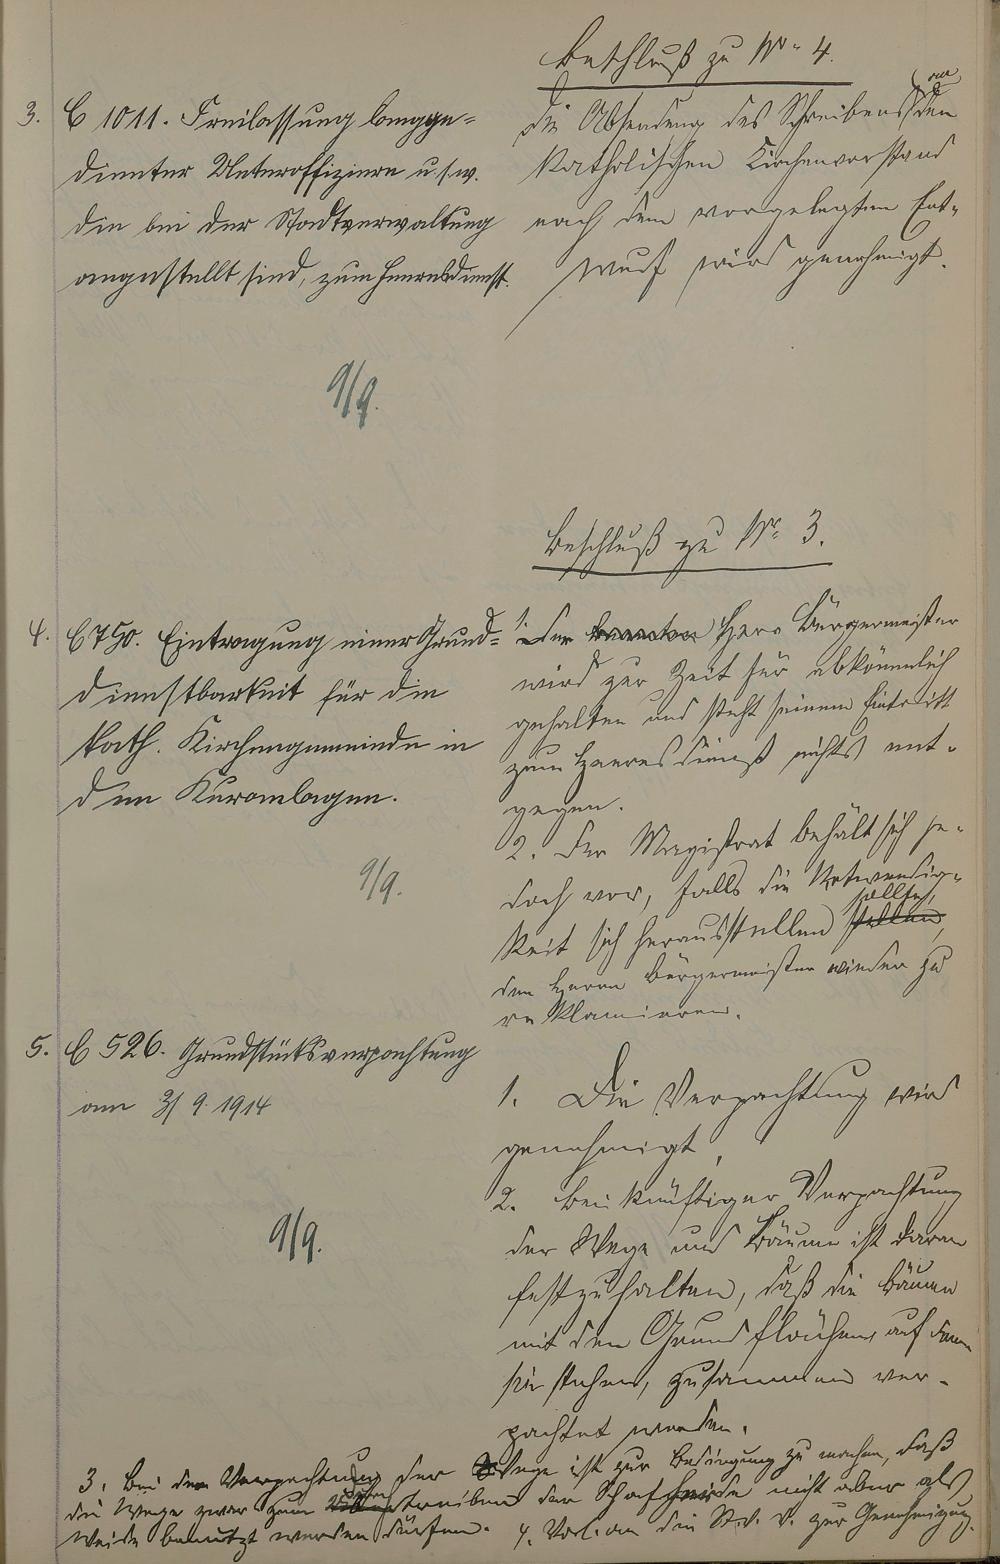 Beschluß zu No 4.
3. C 1011. Freilassung langge-
dienter Unteroffiziere u.s.w.
die bei der Stadtverwaltung
angestellt sind, zum Heeresdienst.
an
Die Absendung des Schreibens den
Katholischen Kirchenvorstand
nach dem vorgelegten Ent-
wurf wird genehmigt.
9/9.
Beschluß zu No 3.
4. C 750. Eintragung einer Grund-
dienstbarkeit für die
kath. Kirchengemeinde in
den Kuranlagen.
9/9.
1. Der Herr Bürgermeister
wird zur Zeit für abkömmlich
gehalten und steht seinem Eintritt
zum Heeresdienst nichts ent-
gegen.
2. Der Magistrat behält sich je-
doch vor, falls die Notwendig-
keit sich herausstellen sollte,
den Herrn Bürgermeister wieder zu
reklamieren.
5. C 526. Grundstücksverpachtung
am 3/9. 1914
9/9.
1. Die Verpachtung wird
genehmigt,
2. Bei künftiger Verpachtung
der Wege und Bäume ist daran
festzuhalten, daß die Bäume
mit den Grundflächen, auf denen
sie stehen, zusammen ver-
pachtet werden.
3. Bei der Verpachtung der Wege ist zur Bedingung zu machen, daß
die Wege zwar zum treiben der Schafherde nicht aber als
Weide benutzt werden dürfen. 4. Vorl. an die St.V.V. zur Genehmigung.